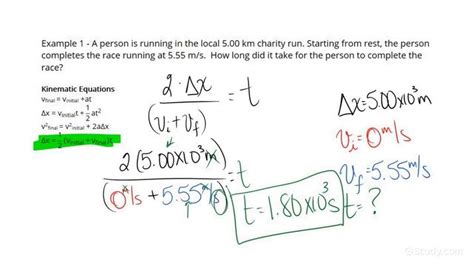 Example 1 - A person is running in the local 5.00 km charity run. Starting from rest, the person
completes the race running at 5.55 m/s. How long did it take for the person to complete the
race?
Kinematic Equations
v_final = v_initial +at
Δx = v_initial t + 1/2 at²
v²_final = v²_initial + 2aΔx
Δx = 1/2 (v_initial + v_final)t
2·Δx / (v_i + v_f) = t
2(5.00×10³m) / (0 m/s + 5.55 m/s) = t
t = 1.80×10³s
Δx = 5.00×10³m
v_i = 0 m/s
v_f = 5.55 m/s
t = ?
Study.com